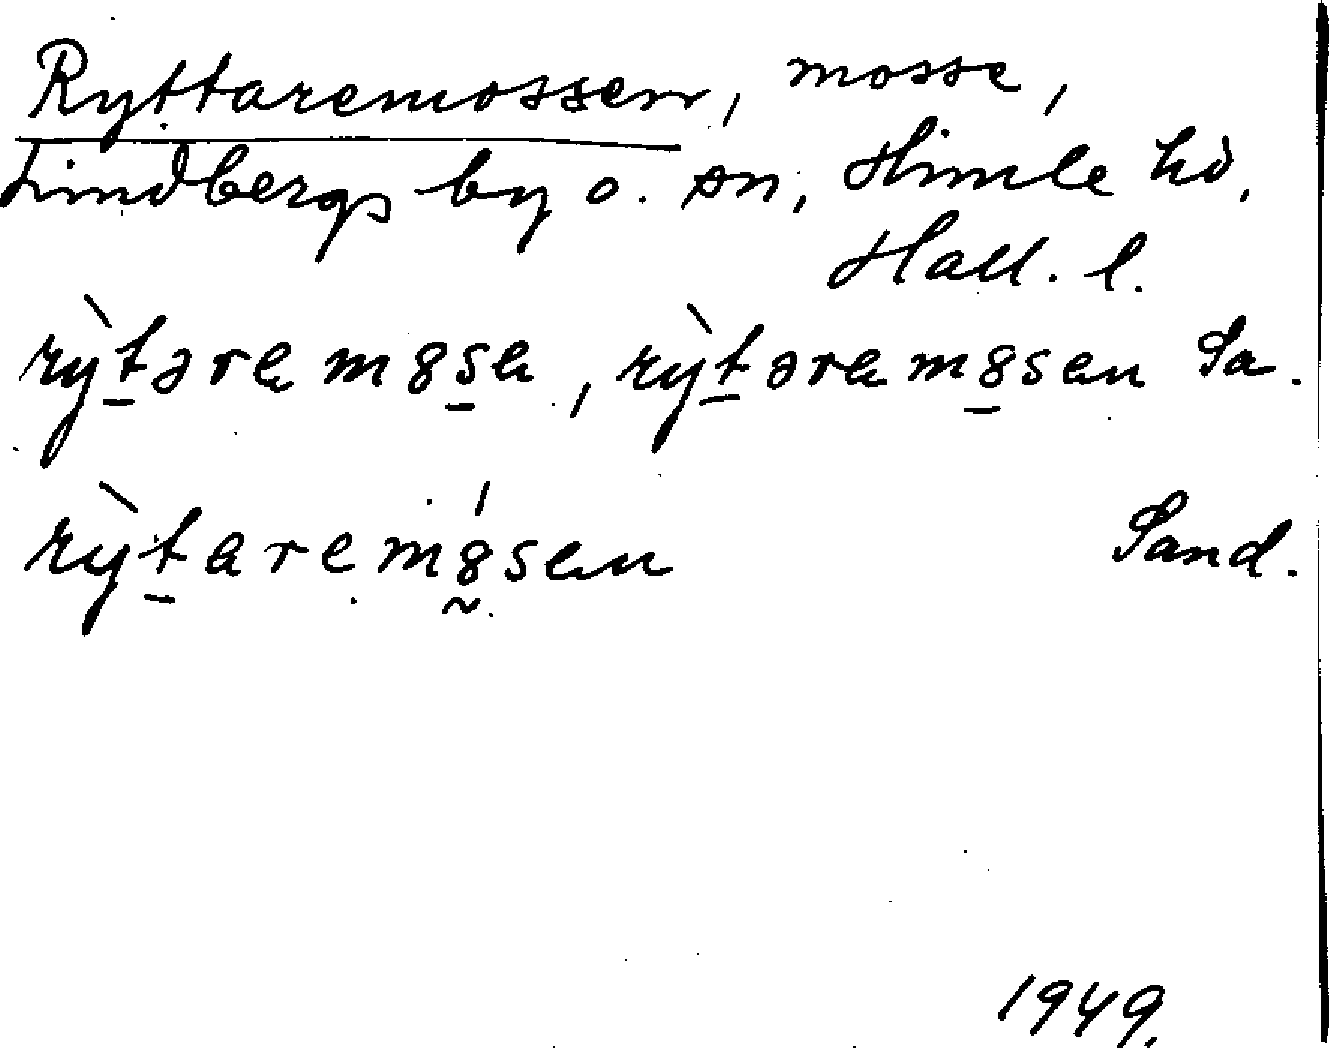 Ryttaremossen, mosse,
Lindbergs by o. sn, Himle hd,
Hall. l.
rỳt̠ərɐ m8s̠ɐ, rỳt̠ərɐ m8̠sɐn Sa.
rỳt̠ɐrem8̰́sɐn Sand.
1949.